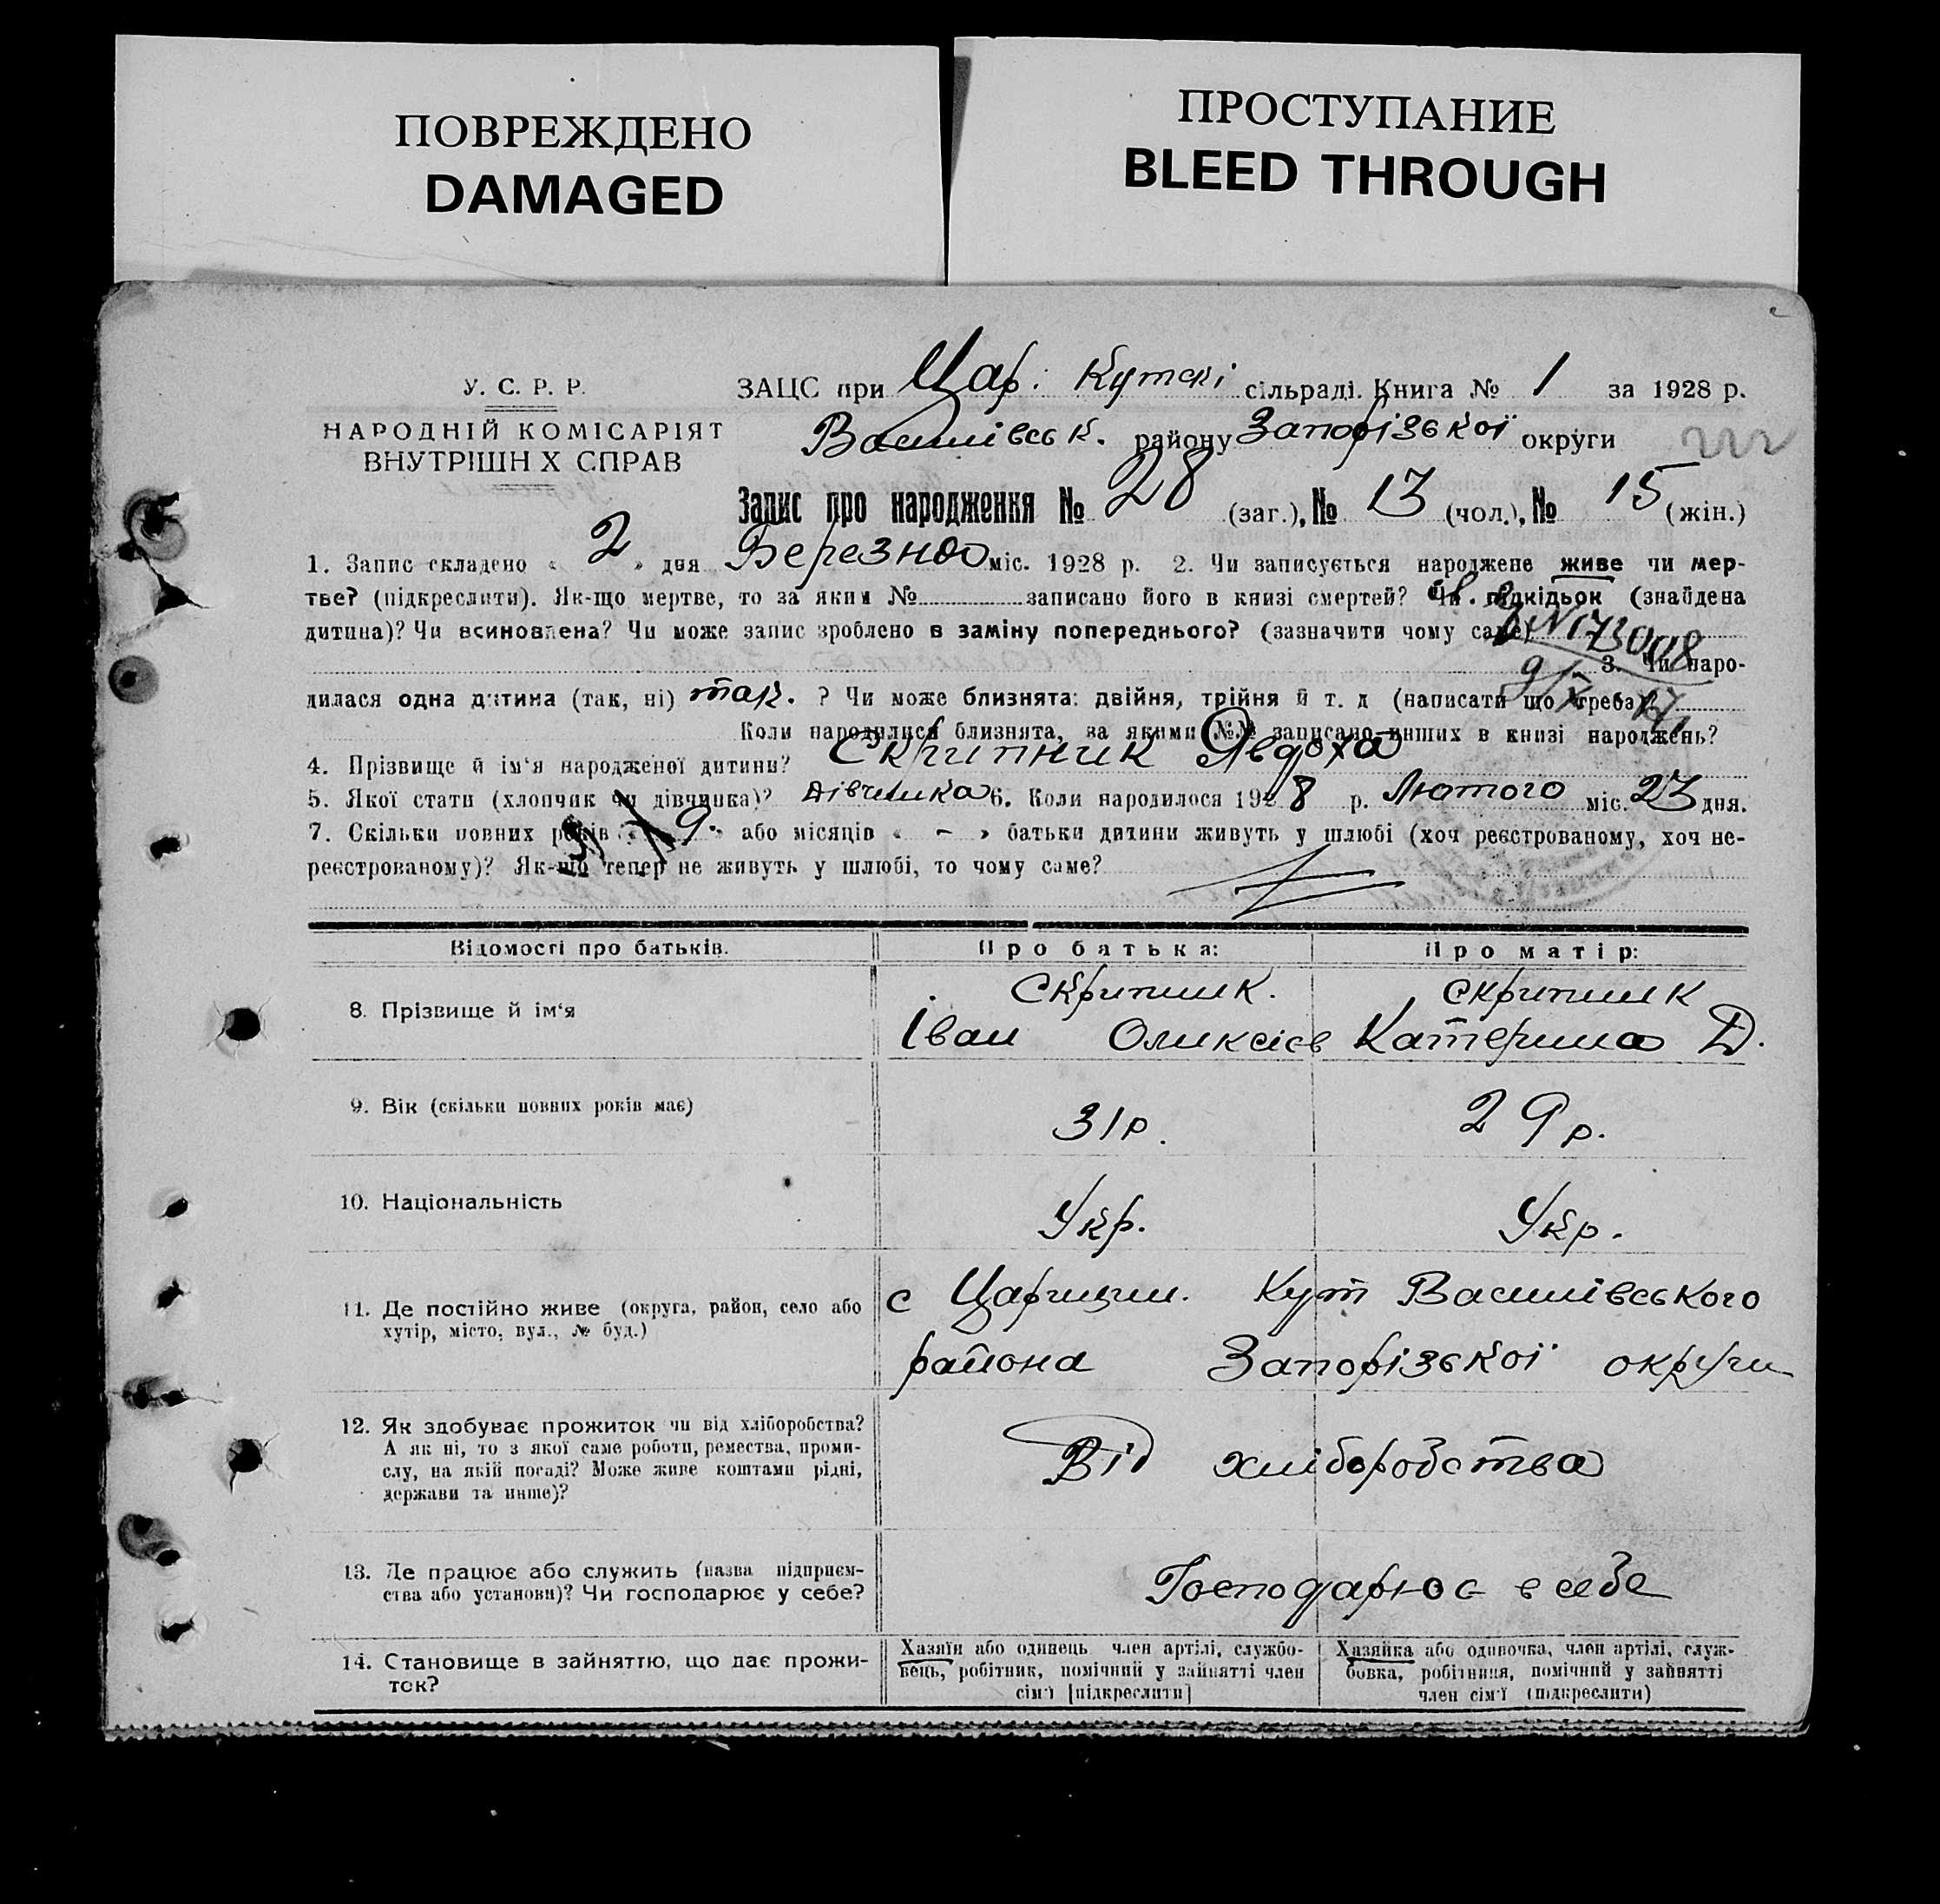 ПОВРЕЖДЕНО
DAMAGED
ПРОСТУПАНИЕ
BLEED THROUGH
У. С. Р. Р.
НАРОДНІЙ КОМІСАРІЯТ
ВНУТРІШН Х СПРАВ
ЗАЦС при Цар. Кутскі сільраді. Книга № 1 за 1928 р.
Василівськ. району Запорізької округи 222
Запис про народження № 28 (заг.), № 13 (чол.), № 15 (жін.)
1. Запис складено « 2 » дня Березня міс. 1928 р. 2. Чи записується народжене живе чи мер-
тве? (підкреслити). Як-що мертве, то за яким № записано його в книзі смертей? Чи підкідьок (знайдена
дитина)? Чи всиновлена? Чи може запис зроблено в заміну попереднього? (зазначити чому саме)
3. Чи наро-
дилася одна дитина (так, ні) так. ? Чи може близнята: двійня, трійня й т. д (написати що треба)?
Коли народилися близнята, за якими №№ записано инших в книзі народжень?
4. Прізвище й ім'я народженої дитини? Скрипник Явдоха
5. Якої стати (хлопчик чи дівчинка)? Дівчинка 6. Коли народилося 1928 р. Лютого міс. 23 дня.
7. Скільки повних років « 9 » або місяців « - » батьки дитини живуть у шлюбі (хоч реєстрованому, хоч не-
реєстрованому)? Як-що тепер не живуть у шлюбі, то чому саме?
Відомості про батьків. Про батька: Про матір:
8. Прізвище й ім'я Скрипник. Скрипник
Іван Оликсієв Катерина Д.
9. Вік (скільки повних років має) 31 р. 29 р.
10. Національність Укр. Укр.
11. Де постійно живе (округа, район, село або
хутір, місто, вул., № буд.)
с Царицин. Кут Василівського
района Запорізької округи
12. Як здобуває прожиток чи від хліборобства?
А як ні, то з якої саме роботи, ремества, проми-
слу, на якій посаді? Може живе коштами рідні,
держави та инше)?
Від хліборобства
13. Де працює або служить (назва підприєм-
ства або установи)? Чи господарює у себе?
Господарює в себе
14. Становище в зайняттю, що дає прожи-
ток?
Хазяїн або одинець член артілі, службо-
вець, робітник, помічний у зайнятті член
сім'ї [підкреслити]
Хазяйка або одиночка, член артілі, служ-
бовка, робітниця, помічний у зайнятті
член сім'ї (підкреслити)